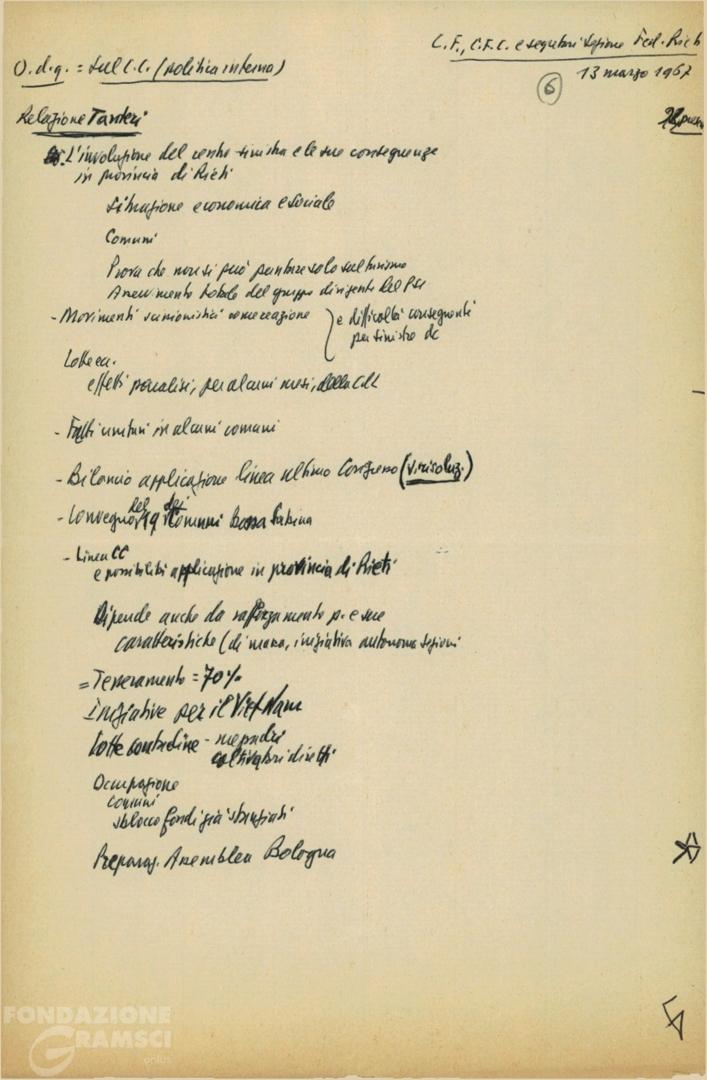 C.F., C.F.C. e segretari sezione Fed. Rieti
O.d.g. = sul C.C. (politica interna)
13 marzo 1967
6
Relazione Tanteri
L'involuzione del centro sinistra e le sue conseguenze
in provincia di Rieti
Situazione economica e sociale
Comuni
Prova che non si può puntare solo sul turismo
Asservimento totale del gruppo dirigente del PSU
- Movimenti scissionistici come reazione
e difficoltà conseguenti
per sinistre dc
Lotte ecc.
effetti paralisi, per alcuni mesi, della CdL
- Fatti unitari in alcuni comuni
- Bilancio applicazione linea ultimo Congresso (v. risoluz.)
- Convegno del 19 dei Comuni Bassa Sabina
- Linea CC
e possibilità applicazione in provincia di Rieti
Dipende anche da rafforzamento p. e sue
caratteristiche (di massa, iniziativa autonoma sezioni
= Tesseramento = 70%
Iniziative per il Viet Nam
Lotte contadine - mezzadri
coltivatori diretti
Occupazione
comuni
sblocco fondi già stanziati
Preparaz. Assemblea Bologna
FONDAZIONE
GRAMSCI
onlus